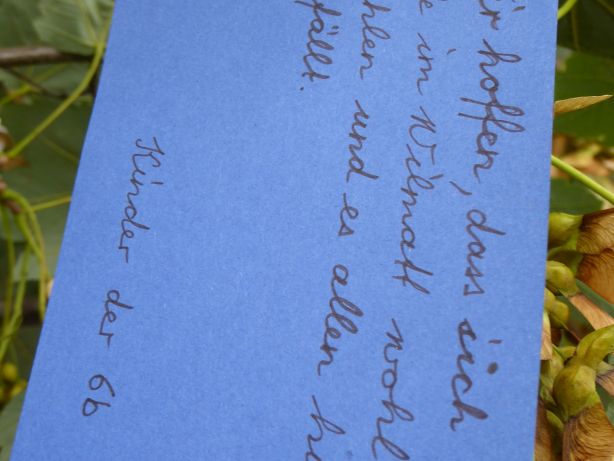 ir hoffen, dass sich
e im Wilmatt wohl
hlen und es allen hi
fällt.
Kinder der 6b